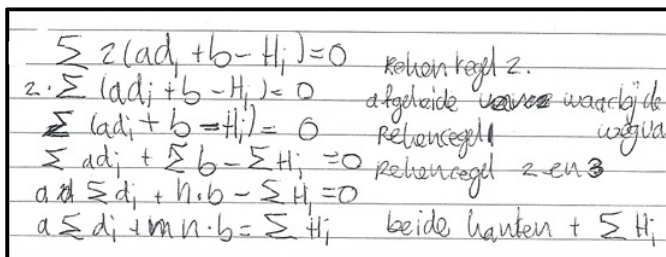 Σ 2(ad_i + b - H_i) = 0 Rekenregel 2.
2 · Σ (ad_i + b - H_i) = 0 afgeleide waarbij de
Σ (ad_i + b - H_i) = 0 Rekenregel 1 wegva
Σ ad_i + Σ b - Σ H_i = 0 Rekenregel 2 en 3
a Σ d_i + n · b - Σ H_i = 0
a Σ d_i + n · b = Σ H_i beide kanten + Σ H_i